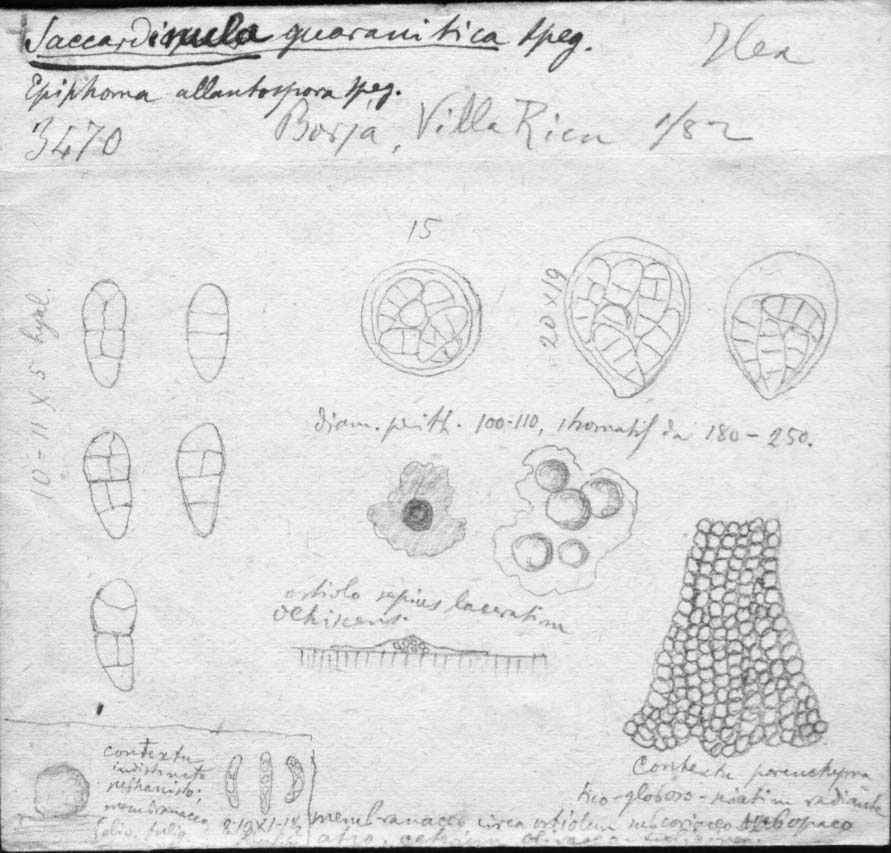 Saccardinula guaranitica Speg.
Ilex
Epiphoma allantospora Speg.
3470
Borja, Villa Rica 1/82
15
10-11 X 5 hyal.
20 x 19
diam. perith. 100-110, stromatis da 180-250.
ostiolo sepius laceratim
dehiscens.
contextu
indistincto
membranaceo
8-10X1-1
Contextu parenchyma
tico-globoso- radiante
membranaceo circa ostiolum subcoriaceo subopaco